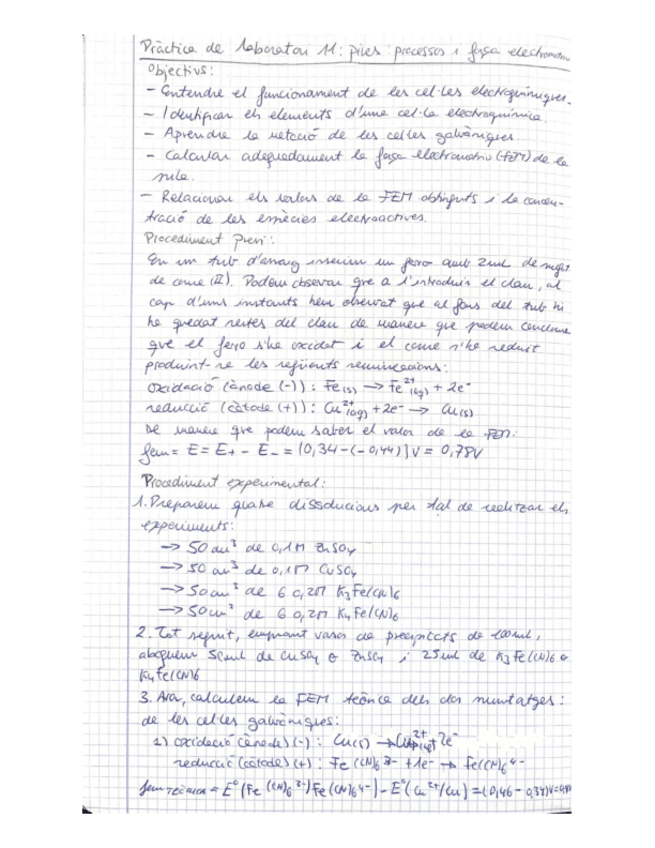 Pràctica de laboratori 11: piles: processos i força electromotriu
Objectius:
- Entendre el funcionament de les cel·les electroquímiques.
- Identificar els elements d'una cel·la electroquímica
- Aprendre la notació de les cel·les galvàniques.
- Calcular adequadament la força electromotriu (FEM) de la
pila.
- Relacionar els valors de la FEM obtinguts i la concen-
tració de les espècies electroactives.
Procediment previ:
En un tub d'assaig inserim un ferro amb 2mL de
de coure (II). Podem observar que a l'introduir el clau, al
cap d'uns instants hem observat que al fons del tub hi
ha quedat restes del clau de manera que podem concloure
que el ferro s'ha oxidat i el coure s'ha reduït
produint-se les següents semireaccions:
oxidació (ànode (-)): Fe(s) → Fe²⁺(aq) + 2e⁻
reducció (càtode (+)): Cu²⁺(aq) + 2e⁻ → Cu(s)
De manera que podem saber el valor de la FEM:
fem = E = E+ - E- = [0,34-(-0,44)]V = 0,78V
Procediment experimental:
1. Preparem quatre dissolucions per tal de realitzar els
experiments:
→ 50 cm³ de 0,1M ZnSO₄
→ 50 cm³ de 0,1M CuSO₄
→ 50 cm³ de 6 0,2M K₃Fe(CN)₆
→ 50 cm³ de 6 0,2M K₄Fe(CN)₆
2. Tot seguit, emprant vasos de precipitats de 100mL,
aboquem 50mL de CuSO₄ o ZnSO₄ i 25mL de K₃Fe(CN)₆ o
K₄Fe(CN)₆
3. Ara, calculem la FEM teòrica dels dos muntatges:
de les cel·les galvàniques:
1) oxidació (ànode) (-): Cu(s) → Cu²⁺(aq) + 2e⁻
reducció (càtode) (+): Fe(CN)₆³⁻ + 1e⁻ → Fe(CN)₆⁴⁻
fem TEÒRICA = E°(Fe(CN)₆³⁻/Fe(CN)₆⁴⁻) - E°(Cu²⁺/Cu) = (0,46 - 0,34)V =